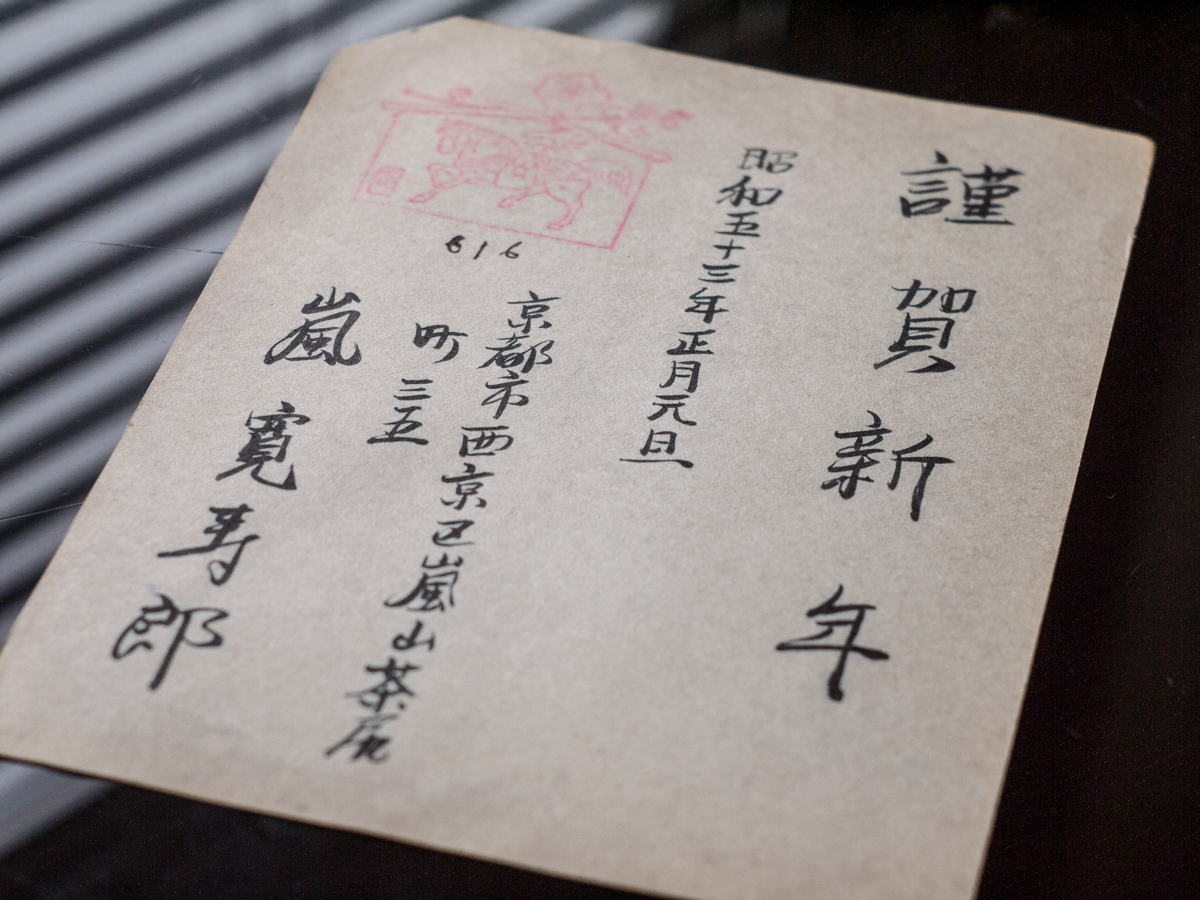 謹賀新年
昭和五十三年正月元旦
京都市西京区嵐山茶尻
町三五
嵐寛寿郎
616